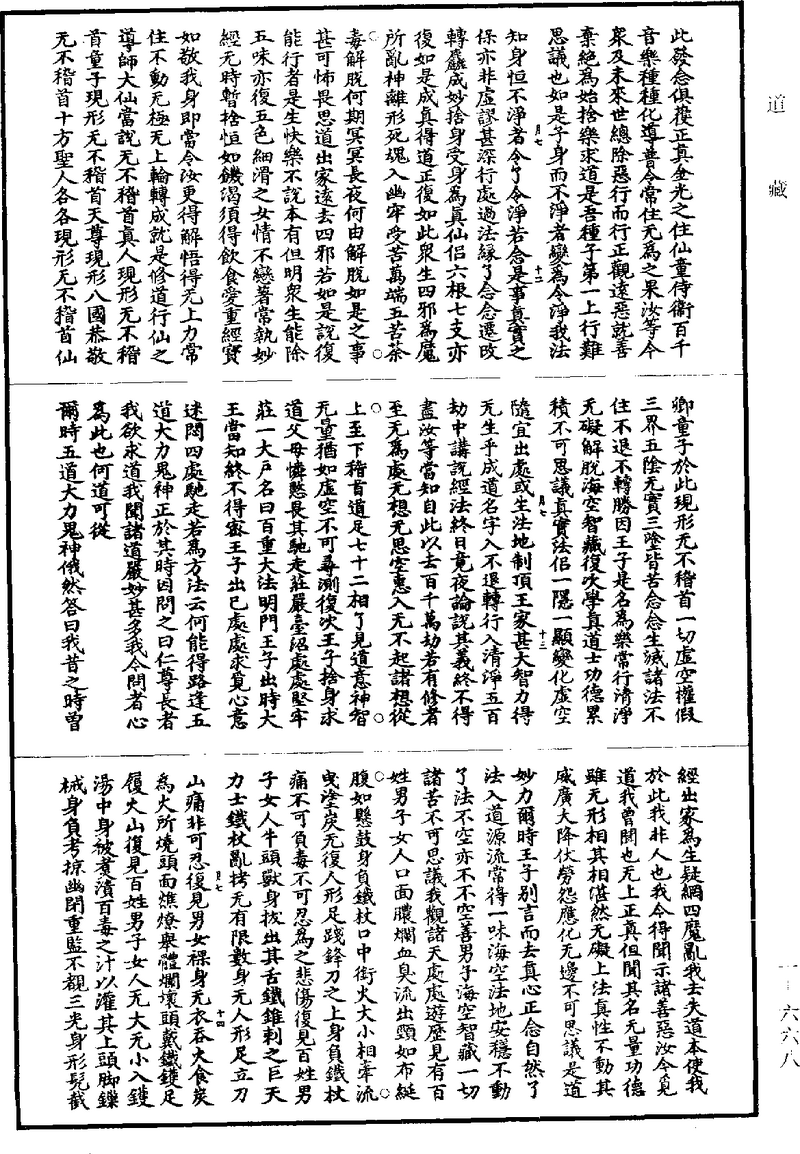 道藏
此發念俱獲正真金光之住仙童侍衛百千
音樂種種化導普令常住无為之果汝等今
衆及未來世總除惡行而行正觀遠惡就善
棄絶為始捨樂求道是吾種子第一上行難
思議也如是子身而不淨者變為令淨我法
月七
十二
知身恒不淨者令了令淨若念是事真實之
保亦非虛謬甚深行處過法緣了念念遷改
轉麤成妙捨身受身為真仙侶六根七支亦
復如是成真得道正復如此衆生四邪為魔
所亂神離形死塊入幽牢受苦萬端五苦荼
毒解脫何期冥冥長夜何由解脫如是之事
甚可怖畏思道出家遠去四邪若如是說復
能行者是生快樂不說本有但明衆生能除
五味亦復五色細滑之女情不戀著常執妙
經无時暫捨恒如饑渴須得飲食愛重經寶
如敬我身即當令汝更得解悟得无上力常
住不動无極无上輪轉成就是修道行仙之
導師大仙當說无不稽首真人現形无不稽
首童子現形无不稽首天尊現形八國恭敬
无不稽首十方聖人各各現形无不稽首仙
卿童子於此現形无不稽首一切虛空權假
三界五陰无實三塗皆苦念念生滅諸法不
住不退不轉勝因王子是名為樂常行清淨
无礙解脫海空智藏復次學真道士功德累
積不可思議真實法侶一隱一顯變化虛空
月七
十三
隨宜出處或生法地制頂王家甚大智力得
无生乎成道名字入不退轉行入清淨五百
劫中講說經法終日竟夜論說其義終不得
盡汝等當知自此以去百千萬劫若有修者
至无為處无想无思空惠入无不起諸想從
上至下稽首道足七十二相了見道意神智
无量猶如虛空不可尋測復次王子捨身求
道父母憐愍畏其馳走莊嚴臺沼處處堅牢
莊一大戶名曰百重大法明門王子出時大
王當知終不得審王子出已處處求覓心意
迷悶四處馳走若為方法云何能得路逢五
道大力鬼神正於其時因問之曰仁尊長者
我欲求道我聞諸道嚴妙甚多我今問者心
為此也何道可從
爾時五道大力鬼神俄然答曰我昔之時曾
經出家為生疑網四魔亂我去失道本使我
於此我非人也我令得聞示諸善惡汝今覓
道我曾聞也无上正真但聞其名无量功德
雖无形相其相湛然无礙上法真性不動其
威廣大降伏勞怨應化无邊不可思議是道
妙力爾時王子别言而去真心正念自然了
法入道源流常得一味海空法地安穩不動
了法不空亦不不空善男子海空智藏一切
諸苦不可思議我觀諸天處處遊歷見有百
姓男子女人口面膿爛血臭流出頸如布綖
腹如懸鼓身負鐵杖口中銜火大小相牽流
曳塗炭无復人形足踐鋒刀之上身負鐵杖
痛不可負毒不可忍為之悲傷復見百姓男
子女人牛頭獸身拔出其舌鐵錐刺之巨天
力士鐵杖亂拷无有限數身无人形足立刀
月七
十四
山痛非可忍復見男女裸身无衣吞火食炭
為火所燒頭面燋燎舉體爛壞頭戴鐵鑊足
履火山復見百姓男子女人无大无小入鑊
湯中身被煮漬百毒之汁以灌其上頭脚鏁
械身負考掠幽閉重監不覩三光身形髡截
一—六六八